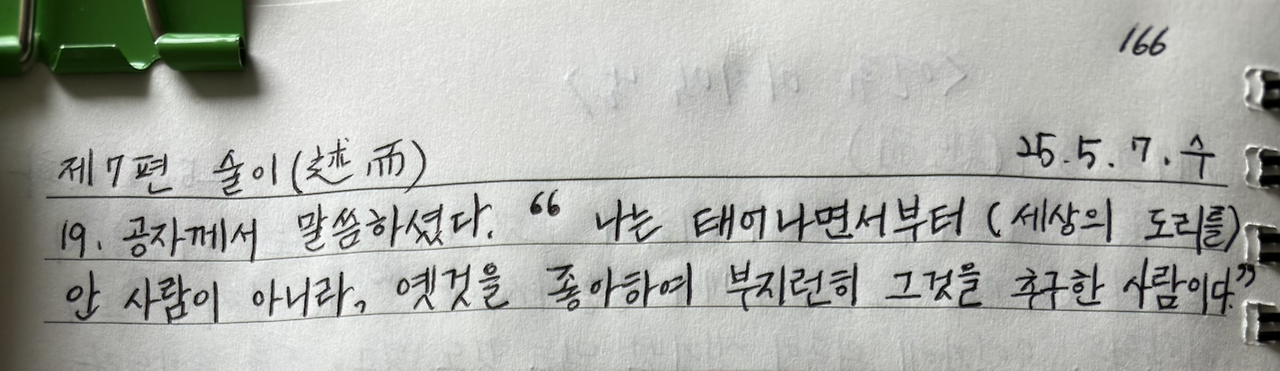 166
제7편 술이(述而) 25.5.7.수
19. 공자께서 말씀하셨다. “ 나는 태어나면서부터 (세상의 도리를)
안 사람이 아니라, 옛것을 좋아하여 부지런히 그것을 추구한 사람이다.”